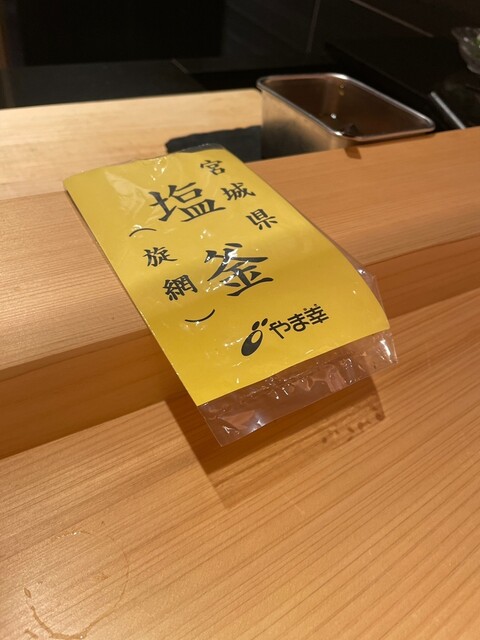 宮城県
塩釜
(旋網)
やま幸